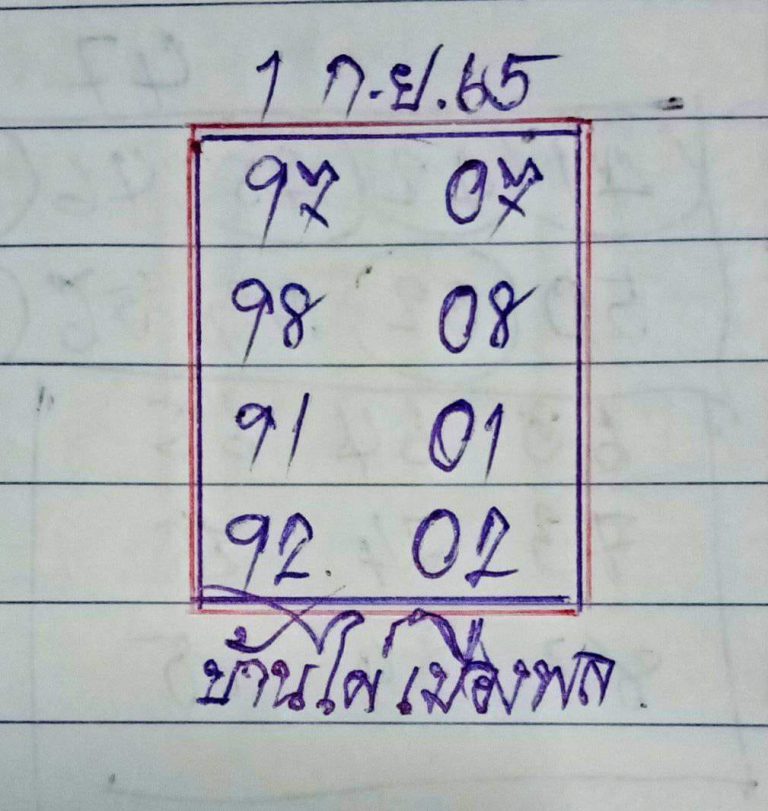 1 ก.ย.65
97 07
98 08
91 01
92 02
บ้านไผ่ เมืองพล